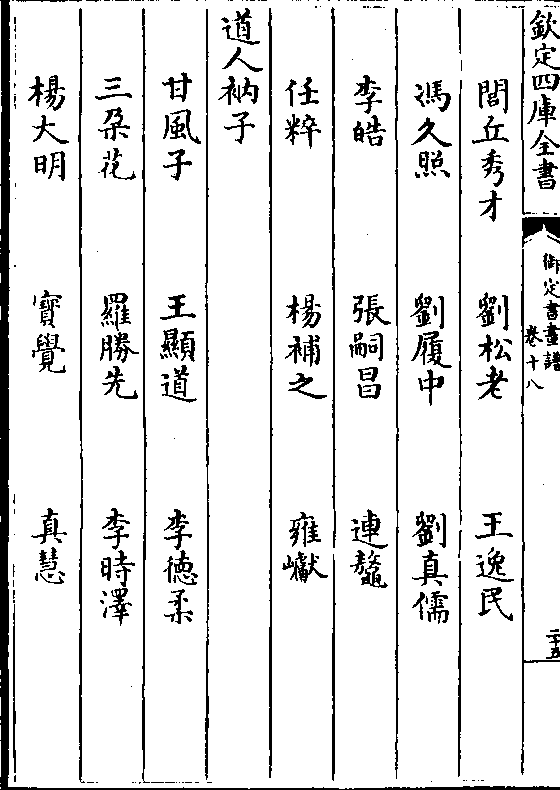 欽定四庫全書
御定書畫譜
卷十八
二十五
閭丘秀才　劉松老　王逸民
馮久照　劉履中　劉真儒
李皓　張嗣昌　連鼇
任粹　楊補之　雍巘
道人衲子
甘風子　王顯道　李德柔
三朶花　羅勝先　李時澤
楊大明　寶覺　真慧